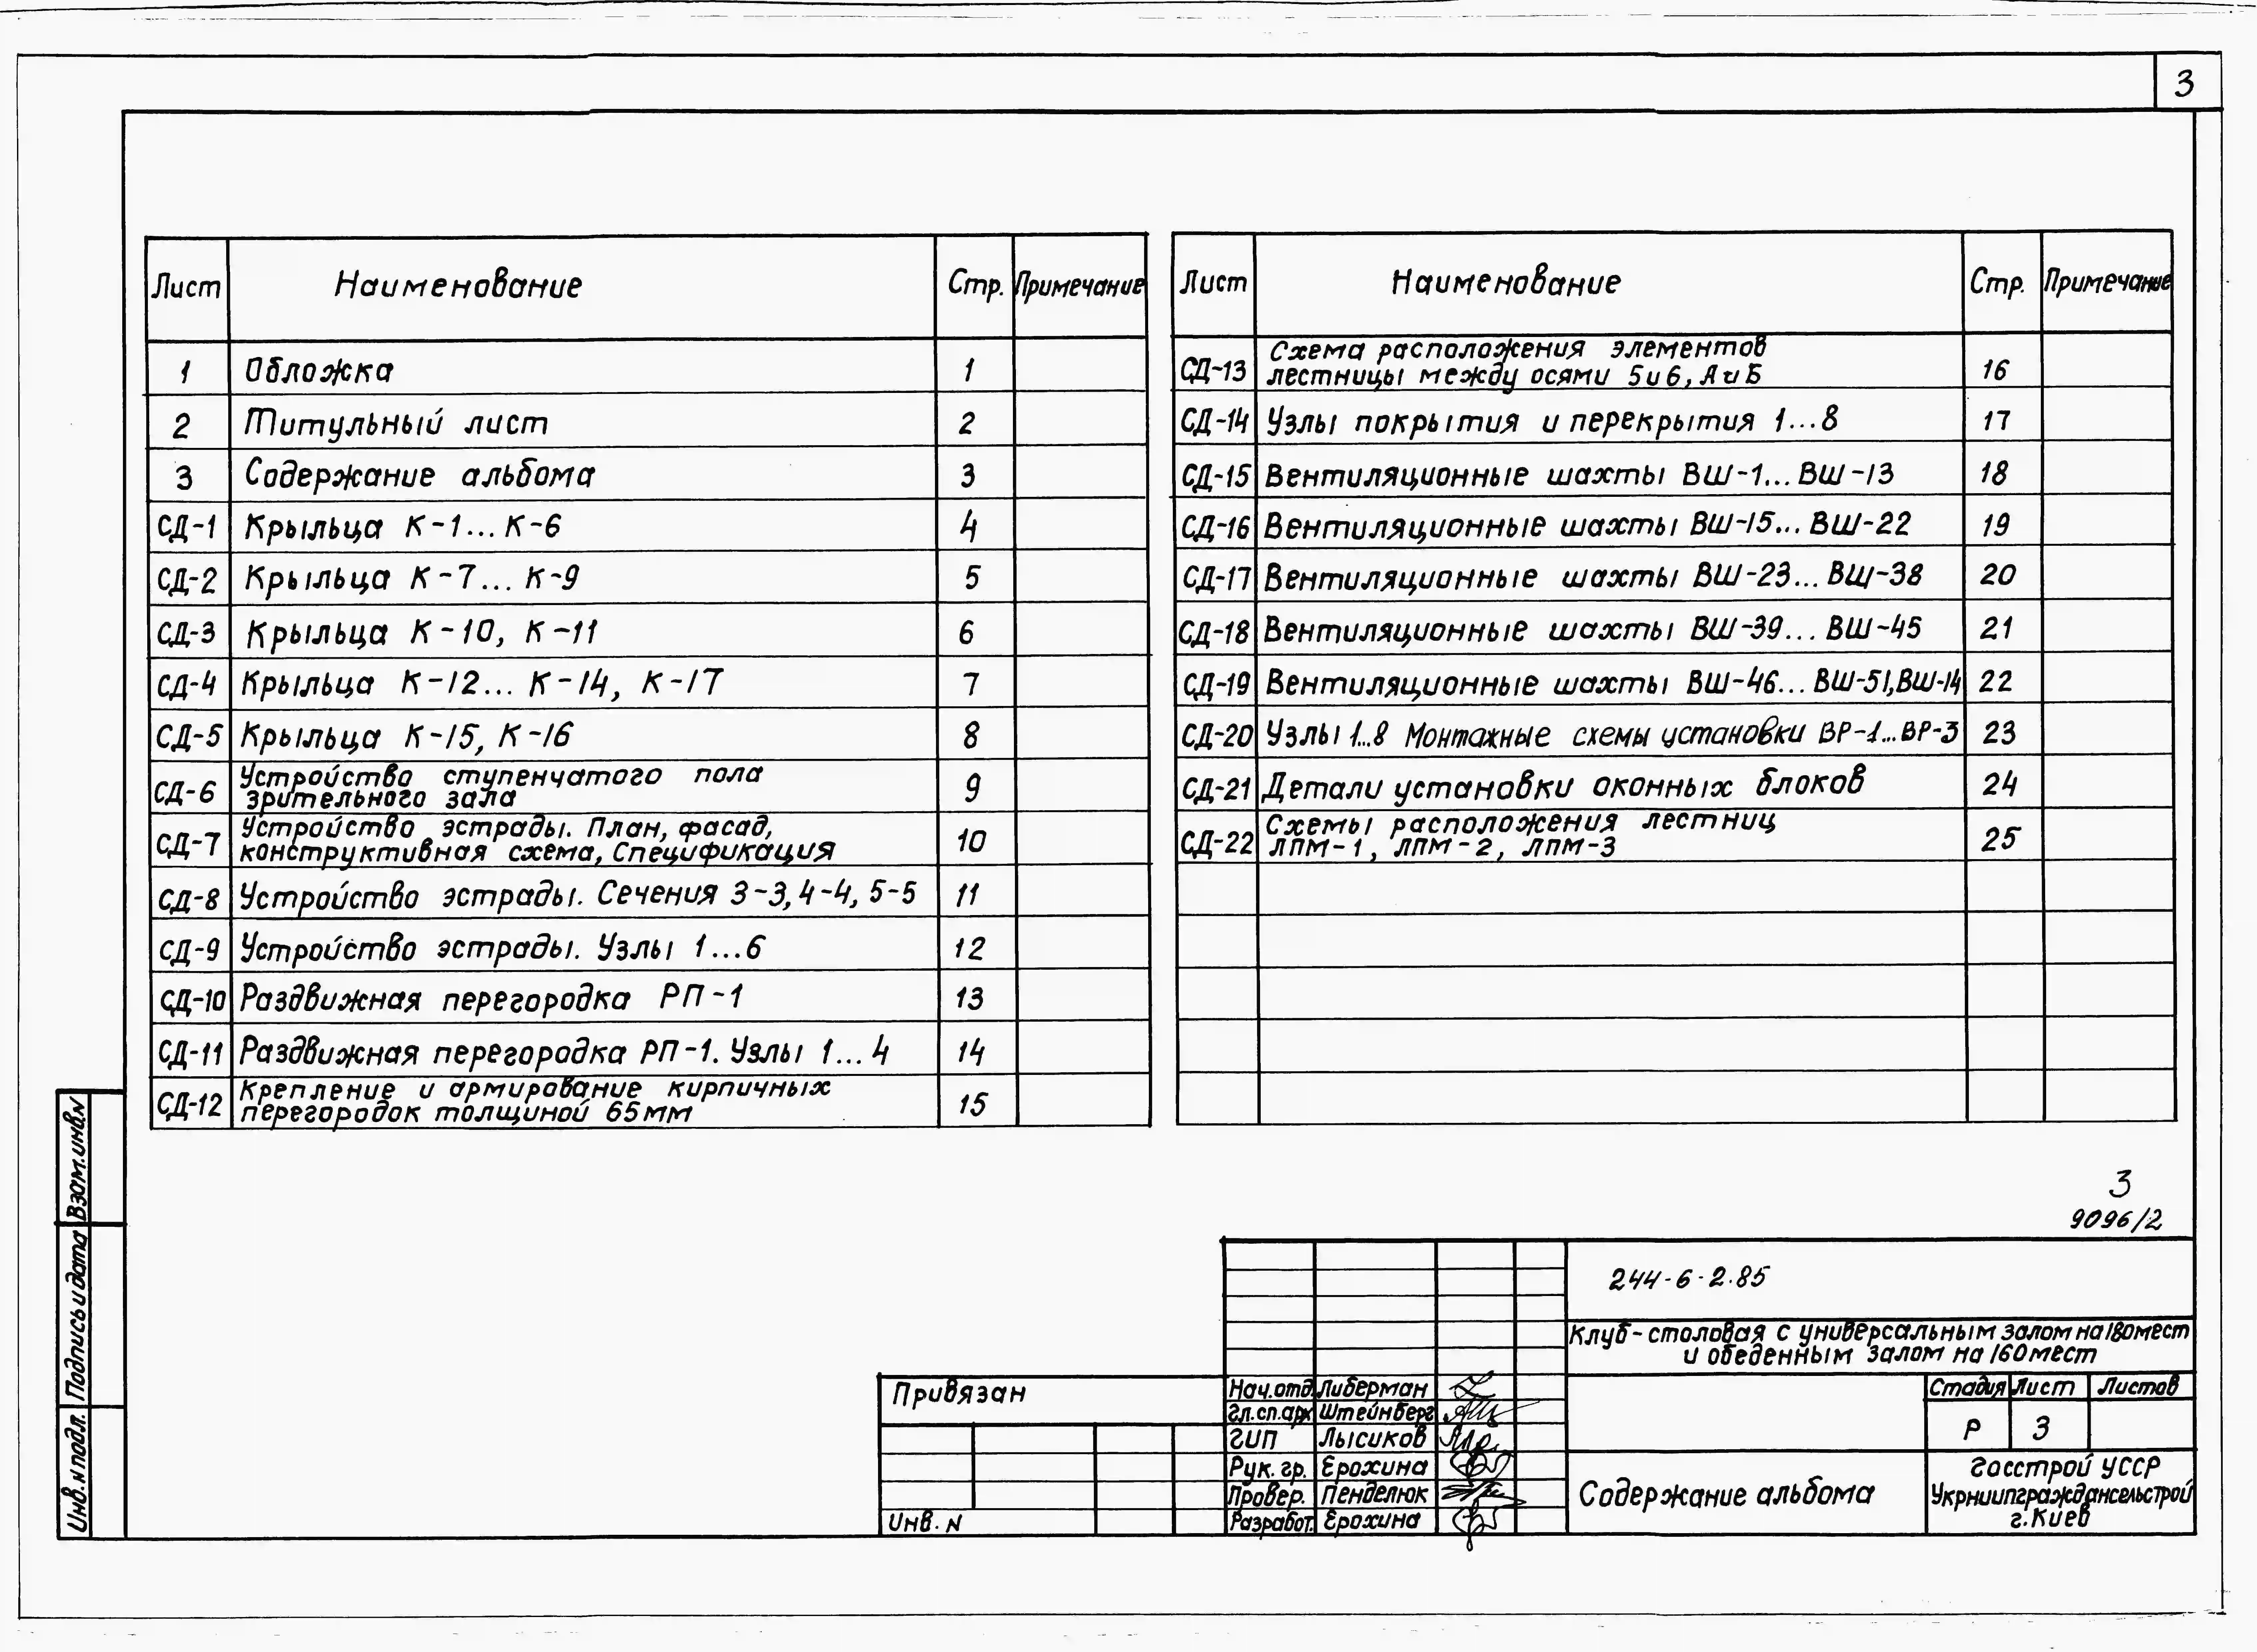 3
Лист Наименование Стр. Примечание
1 Обложка 1
2 Титульный лист 2
3 Содержание альбома 3
СД-1 Крыльца К-1...К-6 4
СД-2 Крыльца К-7...К-9 5
СД-3 Крыльца К-10, К-11 6
СД-4 Крыльца К-12...К-14, К-17 7
СД-5 Крыльца К-15, К-16 8
СД-6 Устройство ступенчатого пола
зрительного зала 9
СД-7 Устройство эстрады. План, фасад,
конструктивная схема, Спецификация 10
СД-8 Устройство эстрады. Сечения 3-3, 4-4, 5-5 11
СД-9 Устройство эстрады. Узлы 1...6 12
СД-10 Раздвижная перегородка РП-1 13
СД-11 Раздвижная перегородка РП-1. Узлы 1...4 14
СД-12 Крепление и армирование кирпичных
перегородок толщиной 65мм 15
Лист Наименование Стр. Примечание
СД-13 Схема расположения элементов
лестницы между осями 5 и 6, А и Б 16
СД-14 Узлы покрытия и перекрытия 1...8 17
СД-15 Вентиляционные шахты ВШ-1...ВШ-13 18
СД-16 Вентиляционные шахты ВШ-15...ВШ-22 19
СД-17 Вентиляционные шахты ВШ-23...ВШ-38 20
СД-18 Вентиляционные шахты ВШ-39...ВШ-45 21
СД-19 Вентиляционные шахты ВШ-46...ВШ-51, ВШ-14 22
СД-20 Узлы 1...8 Монтажные схемы установки ВР-1...ВР-3 23
СД-21 Детали установки оконных блоков 24
СД-22 Схемы расположения лестниц
ЛПМ-1, ЛПМ-2, ЛПМ-3 25
3
9096/2
244-6-2.85
Клуб-столовая с универсальным залом на 180 мест
и обеденным залом на 160 мест
Привязан
Инв. N
Нач.отд. Либерман
Гл.сп.арх Штейнберг
ГИП Лысиков
Рук. гр. Ерохина
Провер. Пенделюк
Разработ. Ерохина
Стадия Лист Листов
Р 3
Содержание альбома
Госстрой УССР
Укрниипграждансельстрой
г. Киев
Взам.инв.N
Подпись и дата
Инв. N подл.